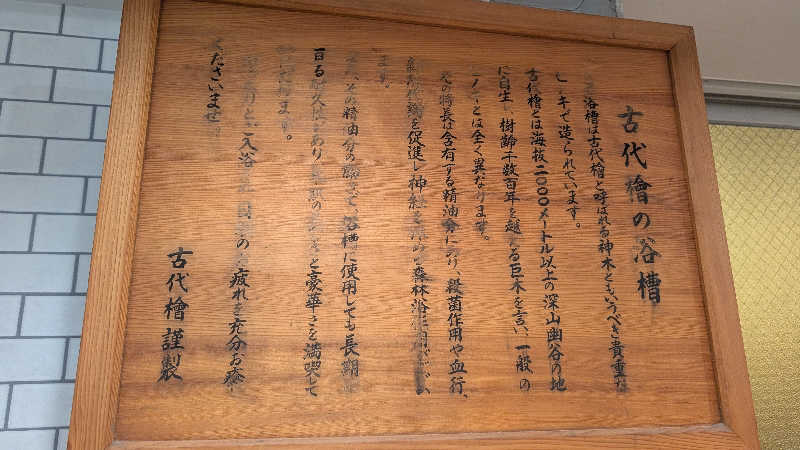 古代檜の浴槽
浴槽は古代檜と呼ばれる神木ともいうべき貴重な
ヒノキで造られています。
古代檜とは海抜二〇〇〇メートル以上の深山幽谷の地
に自生し樹齢千数百年を越える巨木を言い、一般の
ヒノキとは全く異なります。
その特長は含有する精油分にあり、殺菌作用や血行、
新陳代謝を促進し神経を 森林浴作用が
ます。
その精油分の 浴槽に使用しても長期
百る耐久性があり の と豪華さを満喫して
ます。
ご入浴 の疲れを充分お癒し
くださいませ。
古代檜謹製